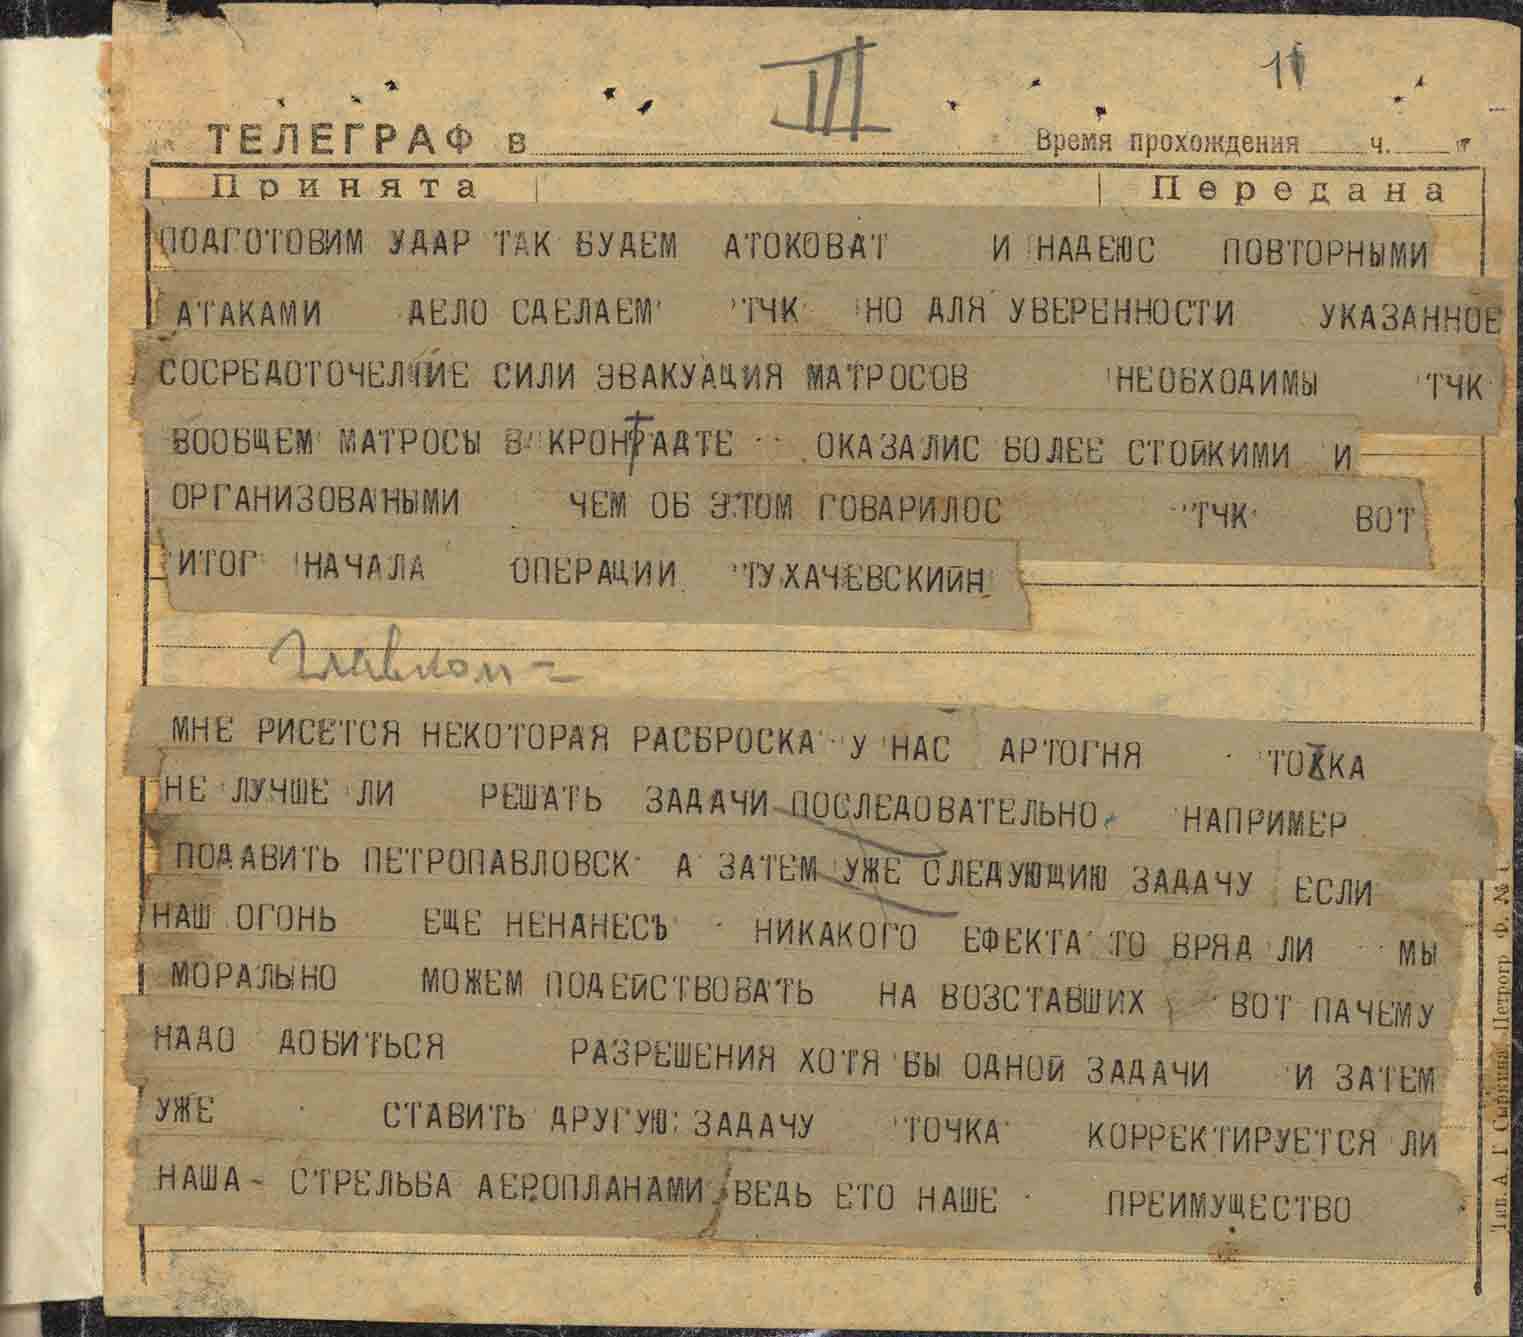 III
11
ТЕЛЕГРАФ в Время прохождения ч.
Принята Передана
ПОДГОТОВИМ УДАР ТАК БУДЕМ АТОКОВАТ И НАДЕЮС ПОВТОРНЫМИ
АТАКАМИ ДЕЛО СДЕЛАЕМ ТЧК НО ДЛЯ УВЕРЕННОСТИ УКАЗАННОЕ
СОСРЕДОТОЧЕЛЧИЕ СИЛИ ЭВАКУАЦИЯ МАТРОСОВ НЕОБХОДИМЫ ТЧК
ВООБЩЕМ МАТРОСЫ В КРОНТАДТЕ ОКАЗАЛИС БОЛЕЕ СТОЙКИМИ И
ОРГАНИЗОВАНЫМИ ЧЕМ ОБ ЭТОМ ГОВАРИЛОС ТЧК ВОТ
ИТОГ НАЧАЛА ОПЕРАЦИИ ТУХАЧЕВСКИЙН
Главком =
МНЕ РИСЕТСЯ НЕКОТОРАЯ РАСБРОСКА У НАС АРТОГНЯ ТОЧКА
НЕ ЛУЧШЕ ЛИ РЕШАТЬ ЗАДАЧИ ПОСЛЕДОВАТЕЛЬНО, НАПРИМЕР
ПОДАВИТЬ ПЕТРОПАВЛОВСК А ЗАТЕМ УЖЕ СЛЕДУЮЩИЮ ЗАДАЧУ ЕСЛИ
НАШ ОГОНЬ ЕЩЕ НЕНАНЕСЪ НИКАКОГО ЕФЕКТА ТО ВРЯД ЛИ МЫ
МОРАЛЬНО МОЖЕМ ПОДЕЙСТВОВАТЬ НА ВОЗСТАВШИХ ВОТ ПАЧЕМУ
НАДО ДОБИТЬСЯ РАЗРЕШЕНИЯ ХОТЯ БЫ ОДНОЙ ЗАДАЧИ И ЗАТЕМ
УЖЕ СТАВИТЬ ДРУГУЮ ЗАДАЧУ ТОЧКА КОРРЕКТИРУЕТСЯ ЛИ
НАША - СТРЕЛЬБА АЕРОПЛАНАМИ ВЕДЬ ЕТО НАШЕ ПРЕИМУЩЕСТВО
Тип. А. Г. Сыркина Петрогр Ф. №